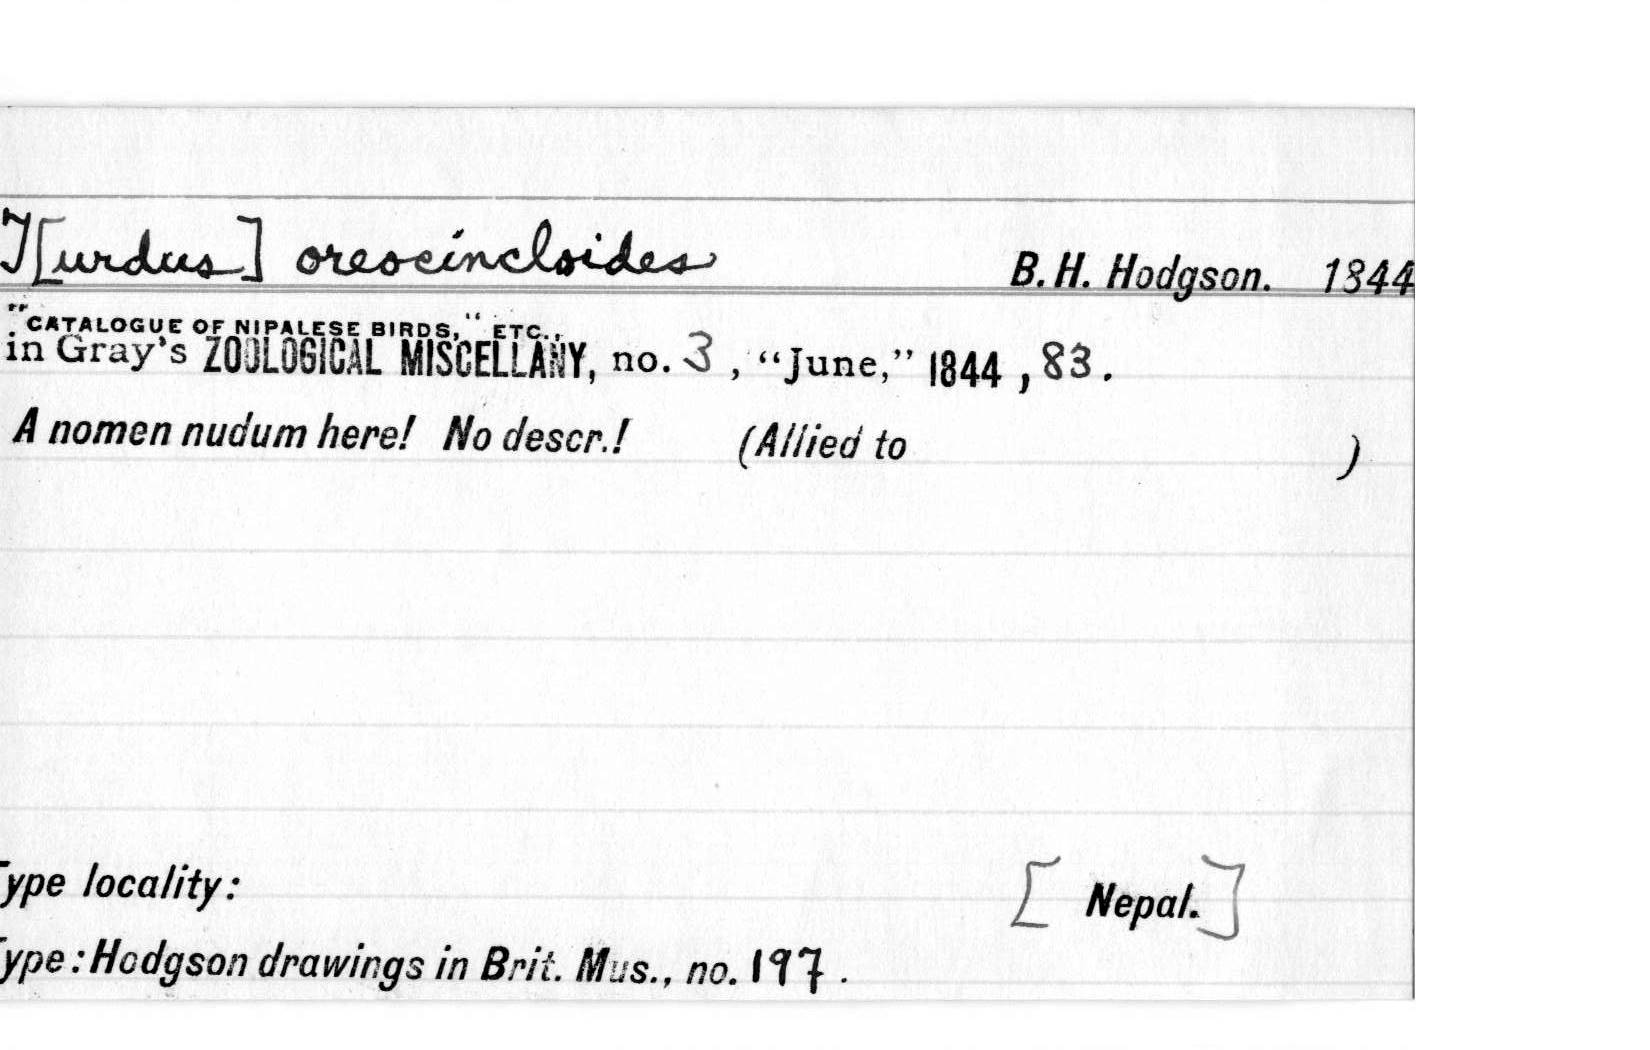 T[urdus] oreocincloides B.H. Hodgson. 1844
"CATALOGUE OF NIPALESE BIRDS," ETC.,
in Gray's ZOOLOGICAL MISCELLANY, no. 3, "June," 1844, 83.
A nomen nudum here! No descr.! (Allied to )
Type locality: [Nepal.]
Type: Hodgson drawings in Brit. Mus., no. 197.